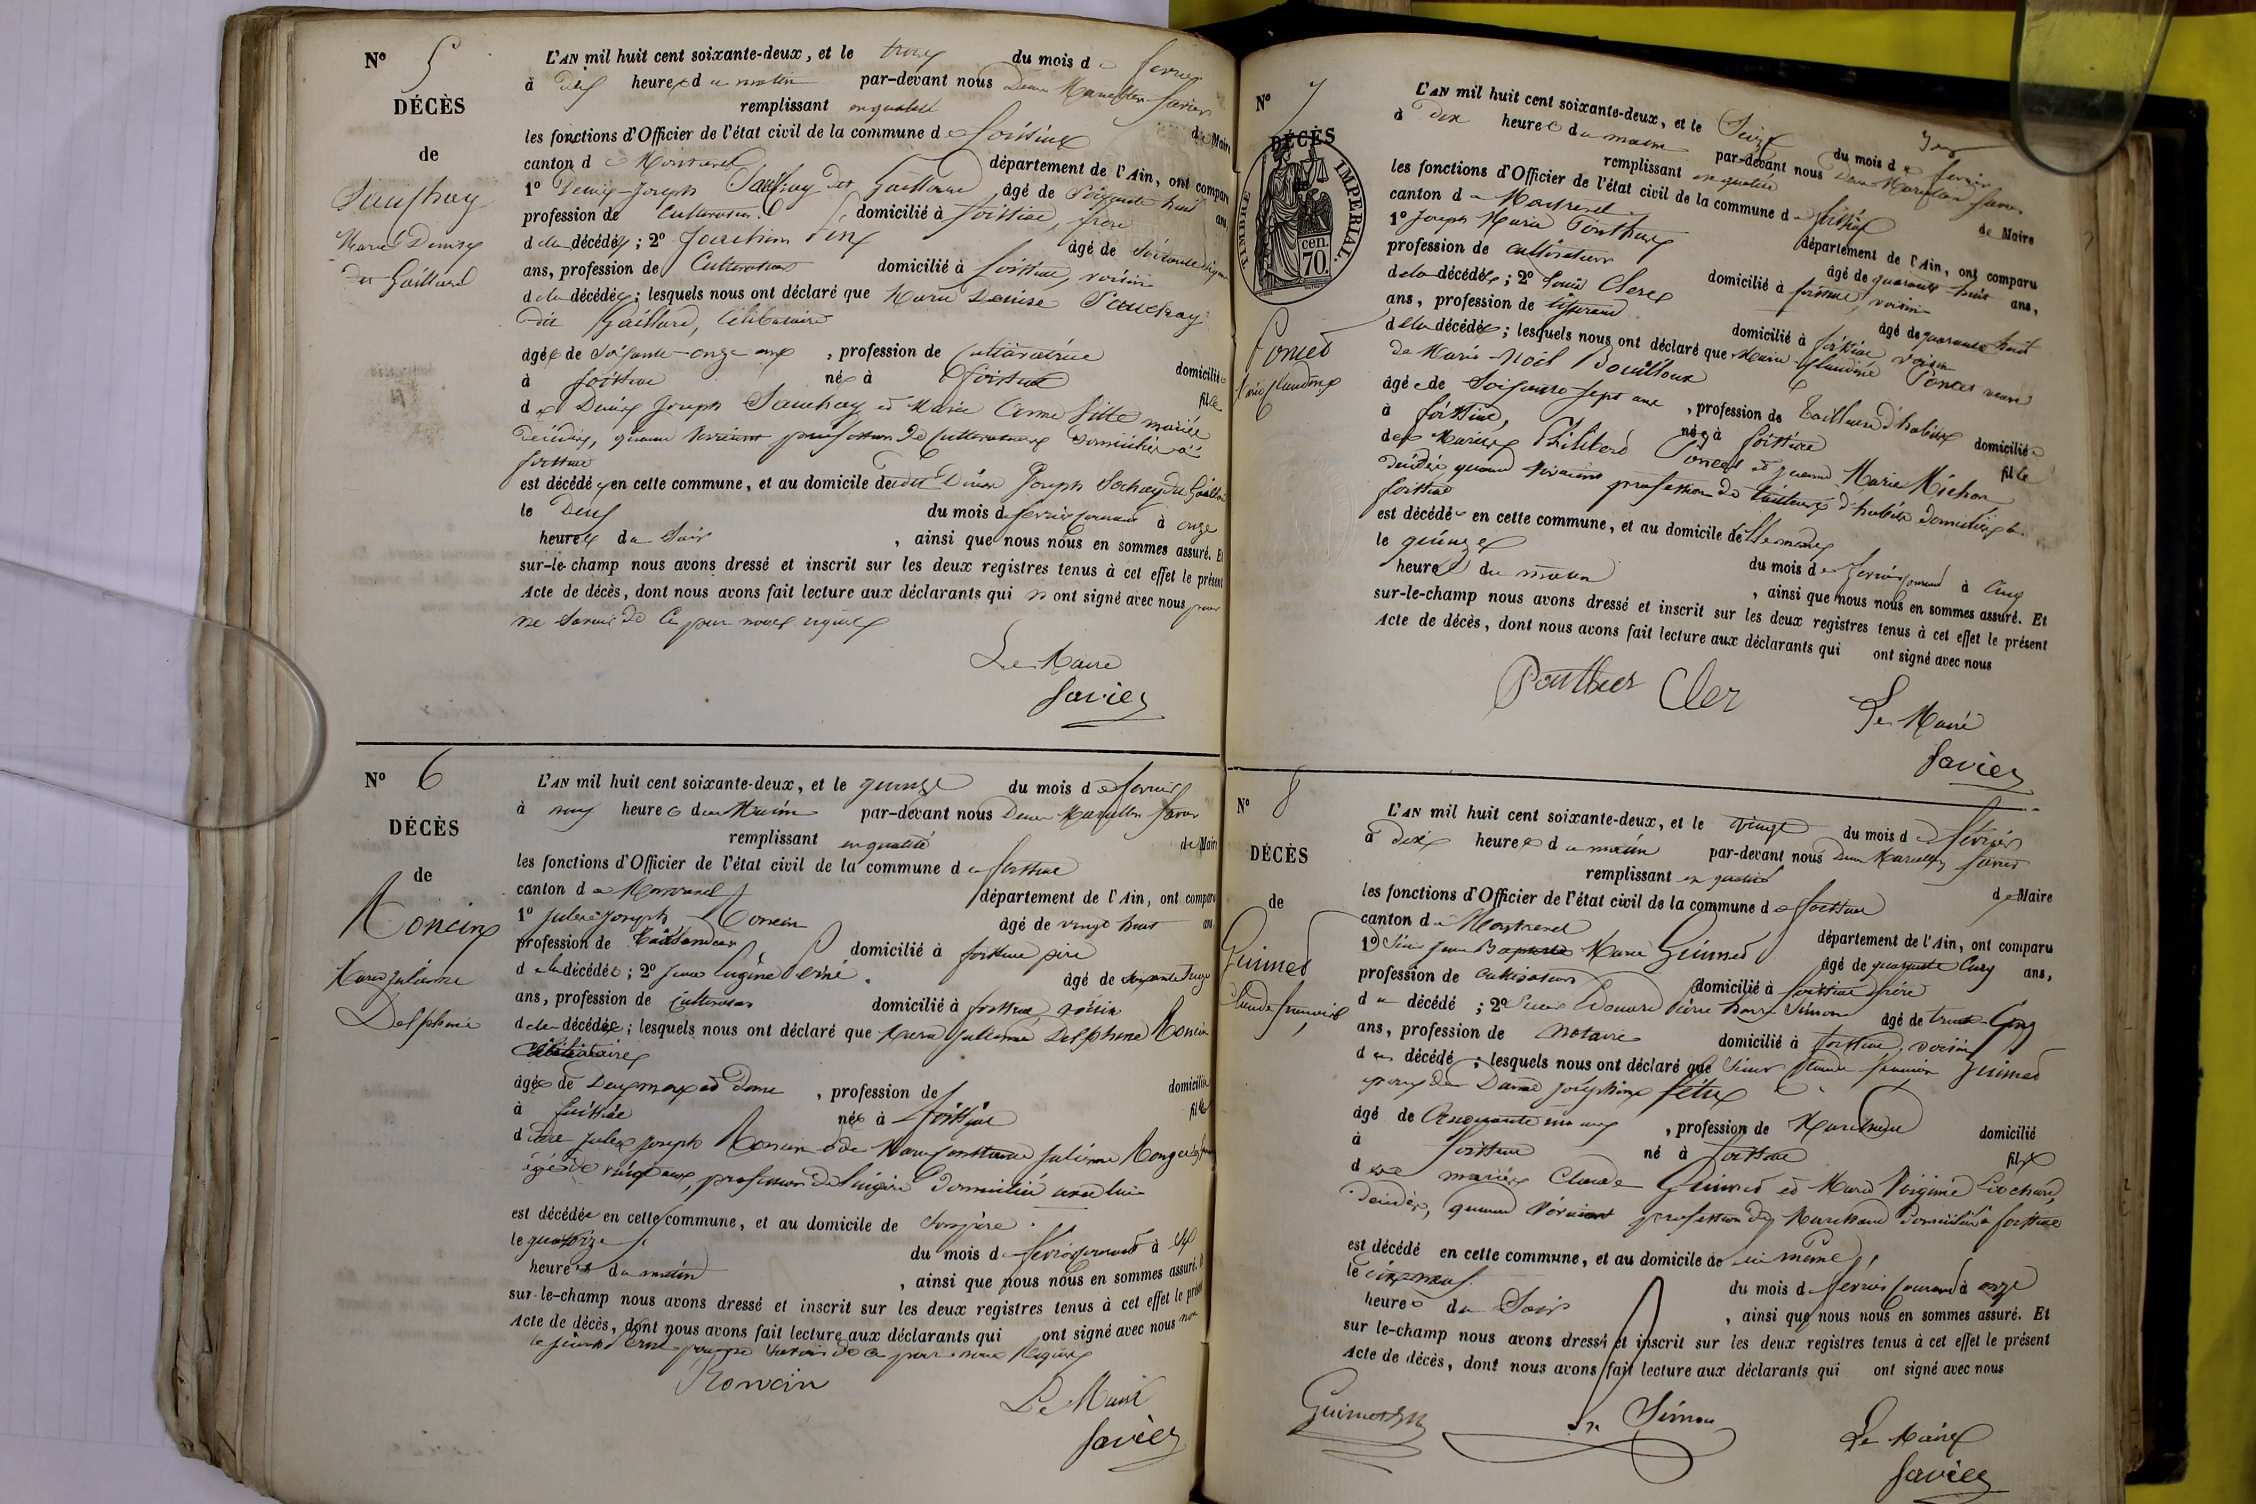 N° 5
DÉCÈS
de
Marie Denise
dit Gaillard
L'AN mil huit cent soixante-deux, et le trois du mois de février
à dix heures du matin par-devant nous
remplissant en qualité de Maire
les fonctions d'Officier de l'état civil de la commune de Foissiat
canton de Montrevel département de l'Ain, ont comparu
1° Denis-Joseph Sauchay dit Gaillard âgé de soixante huit ans,
profession de cultivateur domicilié à Foissiat, frère
de la décédée ; 2° Joachim âgé de
ans, profession de cultivateur domicilié à Foissiat, voisin
de la décédée ; lesquels nous ont déclaré que Marie Denise Sauchay
dit Gaillard, célibataire
âgée de soixante-onze ans , profession de cultivatrice domiciliée
à Foissiat née à Foissiat fille
des Denis Joseph Sauchay et Marie mariés
décédés, quand vivaient profession de cultivateurs domiciliés à
Foissiat
est décédée en cette commune, et au domicile dudit Denis Joseph Sochay dit Gaillard
le deux du mois de février courant à onze
heures du soir , ainsi que nous nous en sommes assuré. Et
sur-le-champ nous avons dressé et inscrit sur les deux registres tenus à cet effet le présent
Acte de décès, dont nous avons fait lecture aux déclarants qui n'ont signé avec nous pour
ne savoir de ce par nous requis
Le Maire
Favier
N° 6
DÉCÈS
de
Roncin
Marie Julienne
Delphine
L'AN mil huit cent soixante-deux, et le quinze du mois de février
à neuf heures du matin par-devant nous Favier
remplissant en qualité de Maire
les fonctions d'Officier de l'état civil de la commune de Foissiat
canton de Montrevel département de l'Ain, ont comparu
1° Jules Joseph Roncin âgé de vingt huit ans
profession de taillandier domicilié à Foissiat père
de la décédée ; 2° Jean Eugène âgé de soixante treize
ans, profession de cultivateur domicilié à Foissiat voisin
de la décédée ; lesquels nous ont déclaré que Marie Julienne Delphine Roncin
célibataire
âgée de deux mois et demi , profession de domiciliée
à Foissiat née à Foissiat fille
de Jules Joseph Roncin et de Marie Julienne
âgée de vingt ans, profession de lingère domiciliée avec lui
est décédée en cette commune, et au domicile de son père
le quatorze du mois de février courant à six
heures du matin , ainsi que nous nous en sommes assuré. Et
sur-le-champ nous avons dressé et inscrit sur les deux registres tenus à cet effet le présent
Acte de décès, dont nous avons fait lecture aux déclarants qui ont signé avec nous non
pour ne savoir de ce par nous requis
Roncin
Le Maire
Favier
N° 7
DÉCÈS
TIMBRE IMPERIAL.
70 cen.
Poncet
Marie Claudine
L'AN mil huit cent soixante-deux, et le seize du mois de février
à dix heures du matin par-devant nous
remplissant en qualité de Maire
les fonctions d'Officier de l'état civil de la commune de Foissiat
canton de Montrevel département de l'Ain, ont comparu
1° Joseph Marie Ponthus âgé de quarante huit ans,
profession de cultivateur domicilié à Foissiat, voisin
de la décédée ; 2° Louis Clerc âgé de quarante huit
ans, profession de tisserand domicilié à Foissiat voisin
de la décédée ; lesquels nous ont déclaré que Marie Claudine Poncet veuve
de Marie Noël Bouilloux
âgée de soixante sept ans , profession de tailleuse d'habits domiciliée
à Foissiat, née à Foissiat fille
des mariés Philibert Poncet et Marie Michon
décédés quand vivaient profession de tailleurs d'habits domiciliés à
Foissiat
est décédée en cette commune, et au domicile de
le quinze du mois de février courant à cinq
heures du matin , ainsi que nous nous en sommes assuré. Et
sur-le-champ nous avons dressé et inscrit sur les deux registres tenus à cet effet le présent
Acte de décès, dont nous avons fait lecture aux déclarants qui ont signé avec nous
Cler
Le Maire
Favier
N° 8
DÉCÈS
de
Guimet
Claude François
L'AN mil huit cent soixante-deux, et le vingt du mois de février
à dix heures du matin par-devant nous Favier
remplissant en qualité de Maire
les fonctions d'Officier de l'état civil de la commune de Foissiat
canton de Montrevel département de l'Ain, ont comparu
1° Sieur Jean Baptiste Marie Guimet âgé de quarante cinq ans,
profession de cultivateur domicilié à Foissiat frère
du décédé ; 2° Sieur Edouard Pierre Simon âgé de trente-cinq
ans, profession de notaire domicilié à Foissiat, voisin
du décédé ; lesquels nous ont déclaré que sieur Claude François Guimet
époux de Dame Joséphine
âgé de cinquante ans , profession de marchand domicilié
à Foissiat né à Foissiat fils
des mariés Claude Guimet et Marie Virginie
décédés, quand vivaient profession de marchand domiciliés à Foissiat
est décédé en cette commune, et au domicile de lui même
le dix neuf du mois de février courant à onze
heures du soir , ainsi que nous nous en sommes assuré. Et
sur le-champ nous avons dressé et inscrit sur les deux registres tenus à cet effet le présent
Acte de décès, dont nous avons fait lecture aux déclarants qui ont signé avec nous
Guimet
Simon
Le Maire
Favier